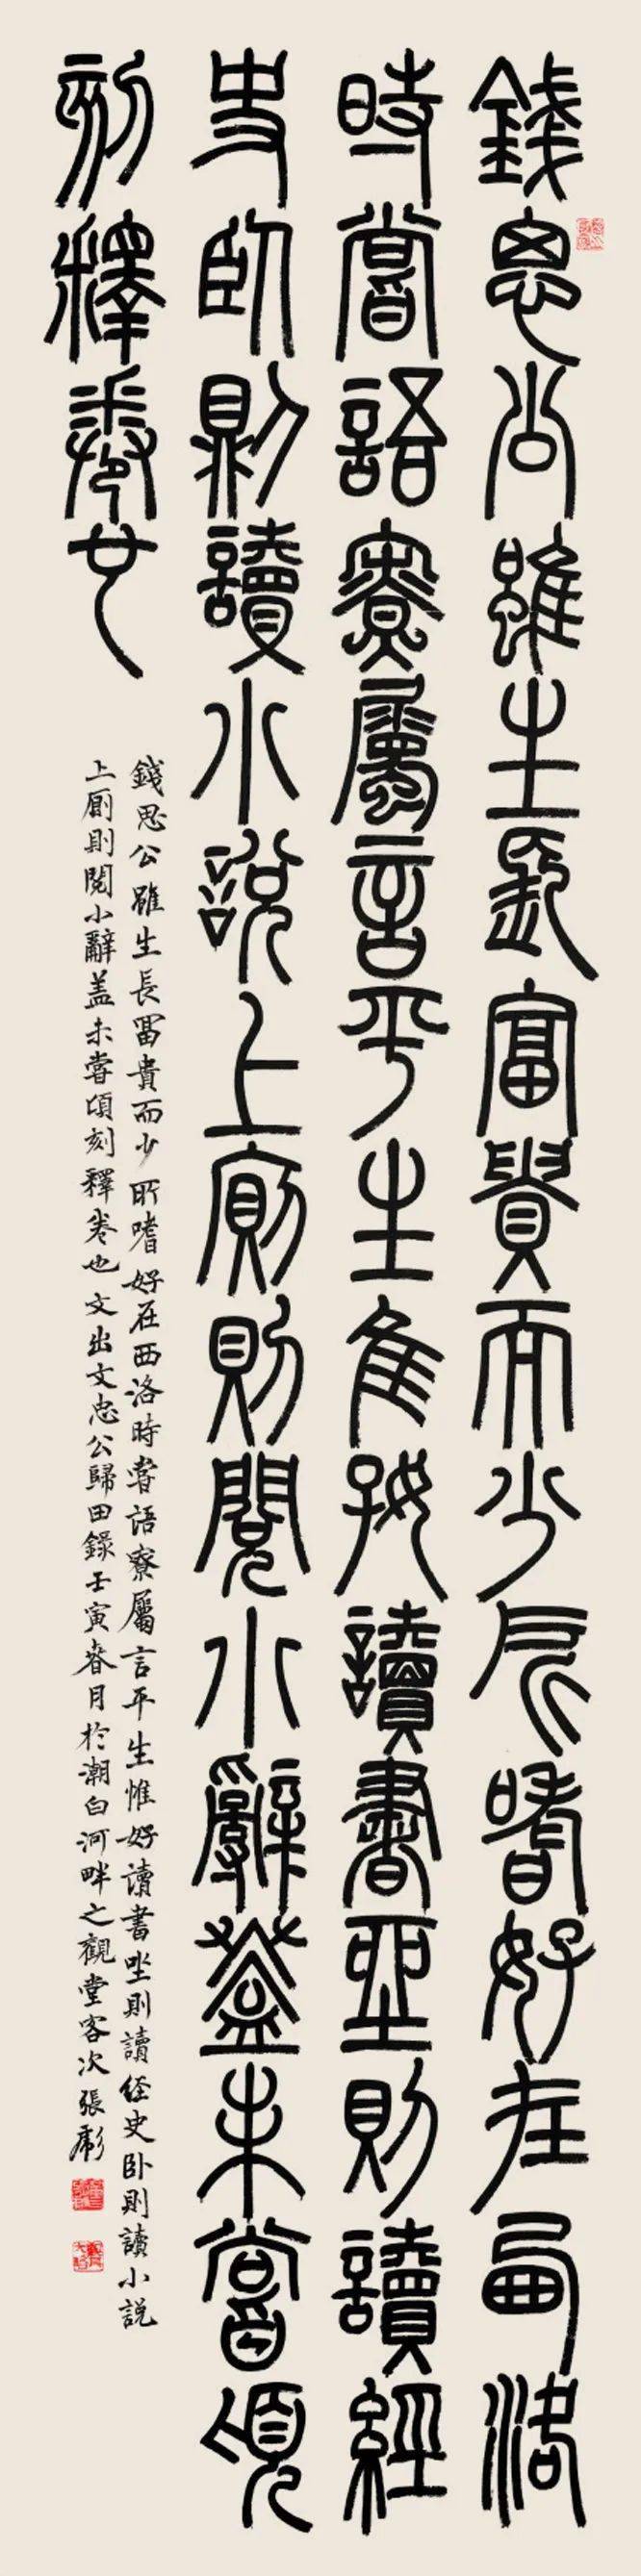 錢思公雖生長富貴而少所嗜好在西洛
時嘗語寮屬言平生惟好讀書坐則讀經
史臥則讀小說上廁則閱小辭蓋未嘗頃
刻釋卷也
錢思公雖生長富貴而少所嗜好在西洛時嘗語寮屬言平生惟好讀書坐則讀經史卧則讀小説
上厠則閱小辭盖未嘗頃刻釋卷也文出文忠公歸田錄壬寅春月於潮白河畔之觀堂客次張彪